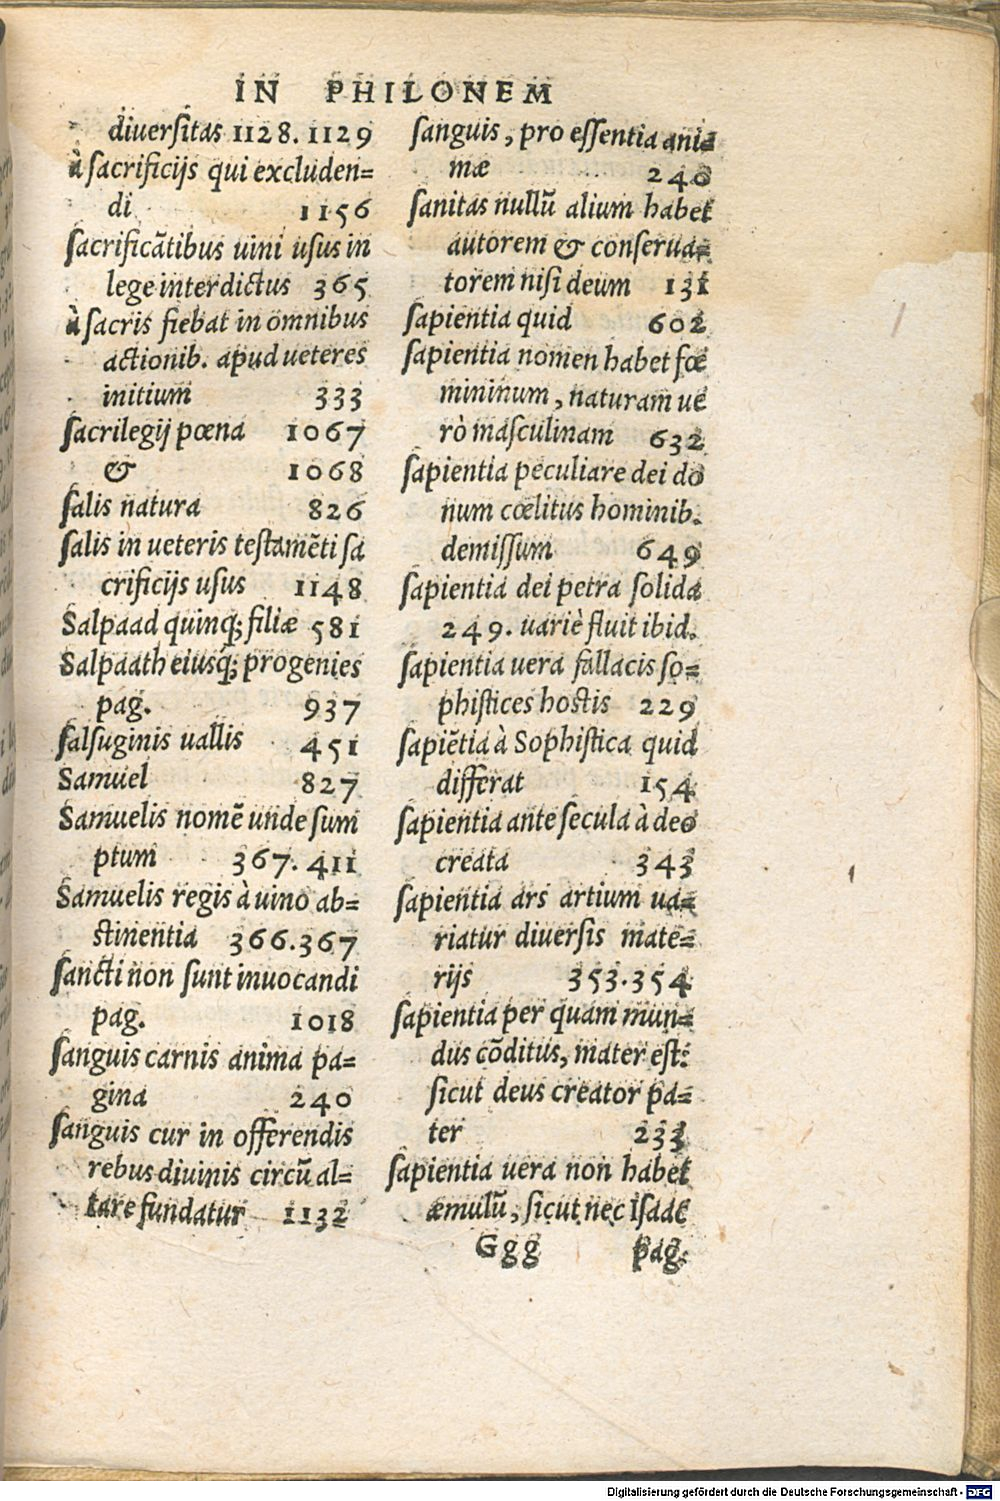 IN PHILONEM
diuerſitas 1128. 1129
à ſacrificijs qui excluden=
di 1156
ſacrificātibus uini uſus in
lege interdictus 365
à ſacris fiebat in omnibus
actionib. apud ueteres
initium 333
ſacrilegij pœna 1067
& 1068
ſalis natura 826
ſalis in ueteris teſtamēti ſa
crificijs uſus 1148
Salpaad quinq; filiæ 581
Salpaath eiusq́; progenies
pag. 937
ſalſuginis uallis 451
Samuel 827
Samuelis nomē unde ſum
ptum 367. 411
Samuelis regis à uino ab=
ſtinentia 366.367
ſancti non ſunt inuocandi
pag. 1018
ſanguis carnis anima pa=
gina 240
ſanguis cur in offerendis
rebus diuinis circū al=
tare fundatur 1132
ſanguis, pro eſſentia ani=
mæ 240
ſanitas nullū alium habet
autorem & conſerua=
torem niſi deum 131
ſapientia quid 602
ſapientia nomen habet fœ
mininum, naturam ue
rò maſculinam 632
ſapientia peculiare dei do
num cœlitus hominib.
demiſſum 649
ſapientia dei petra ſolida
249. uariè fluit ibid.
ſapientia uera fallacis ſo=
phiſtices hoſtis 229
ſapiētia à Sophiſtica quid
differat 154
ſapientia ante ſecula à deo
creata 343
ſapientia ars artium ua=
riatur diuerſis mate=
rijs 353.354
ſapientia per quam mun=
dus cōditus, mater eſt:
ſicut deus creator pa=
ter 233
ſapientia uera non habet
æmulū, ſicut nec Iſaac
Ggg pag.
Digitalisierung gefördert durch die Deutsche Forschungsgemeinschaft - DFG